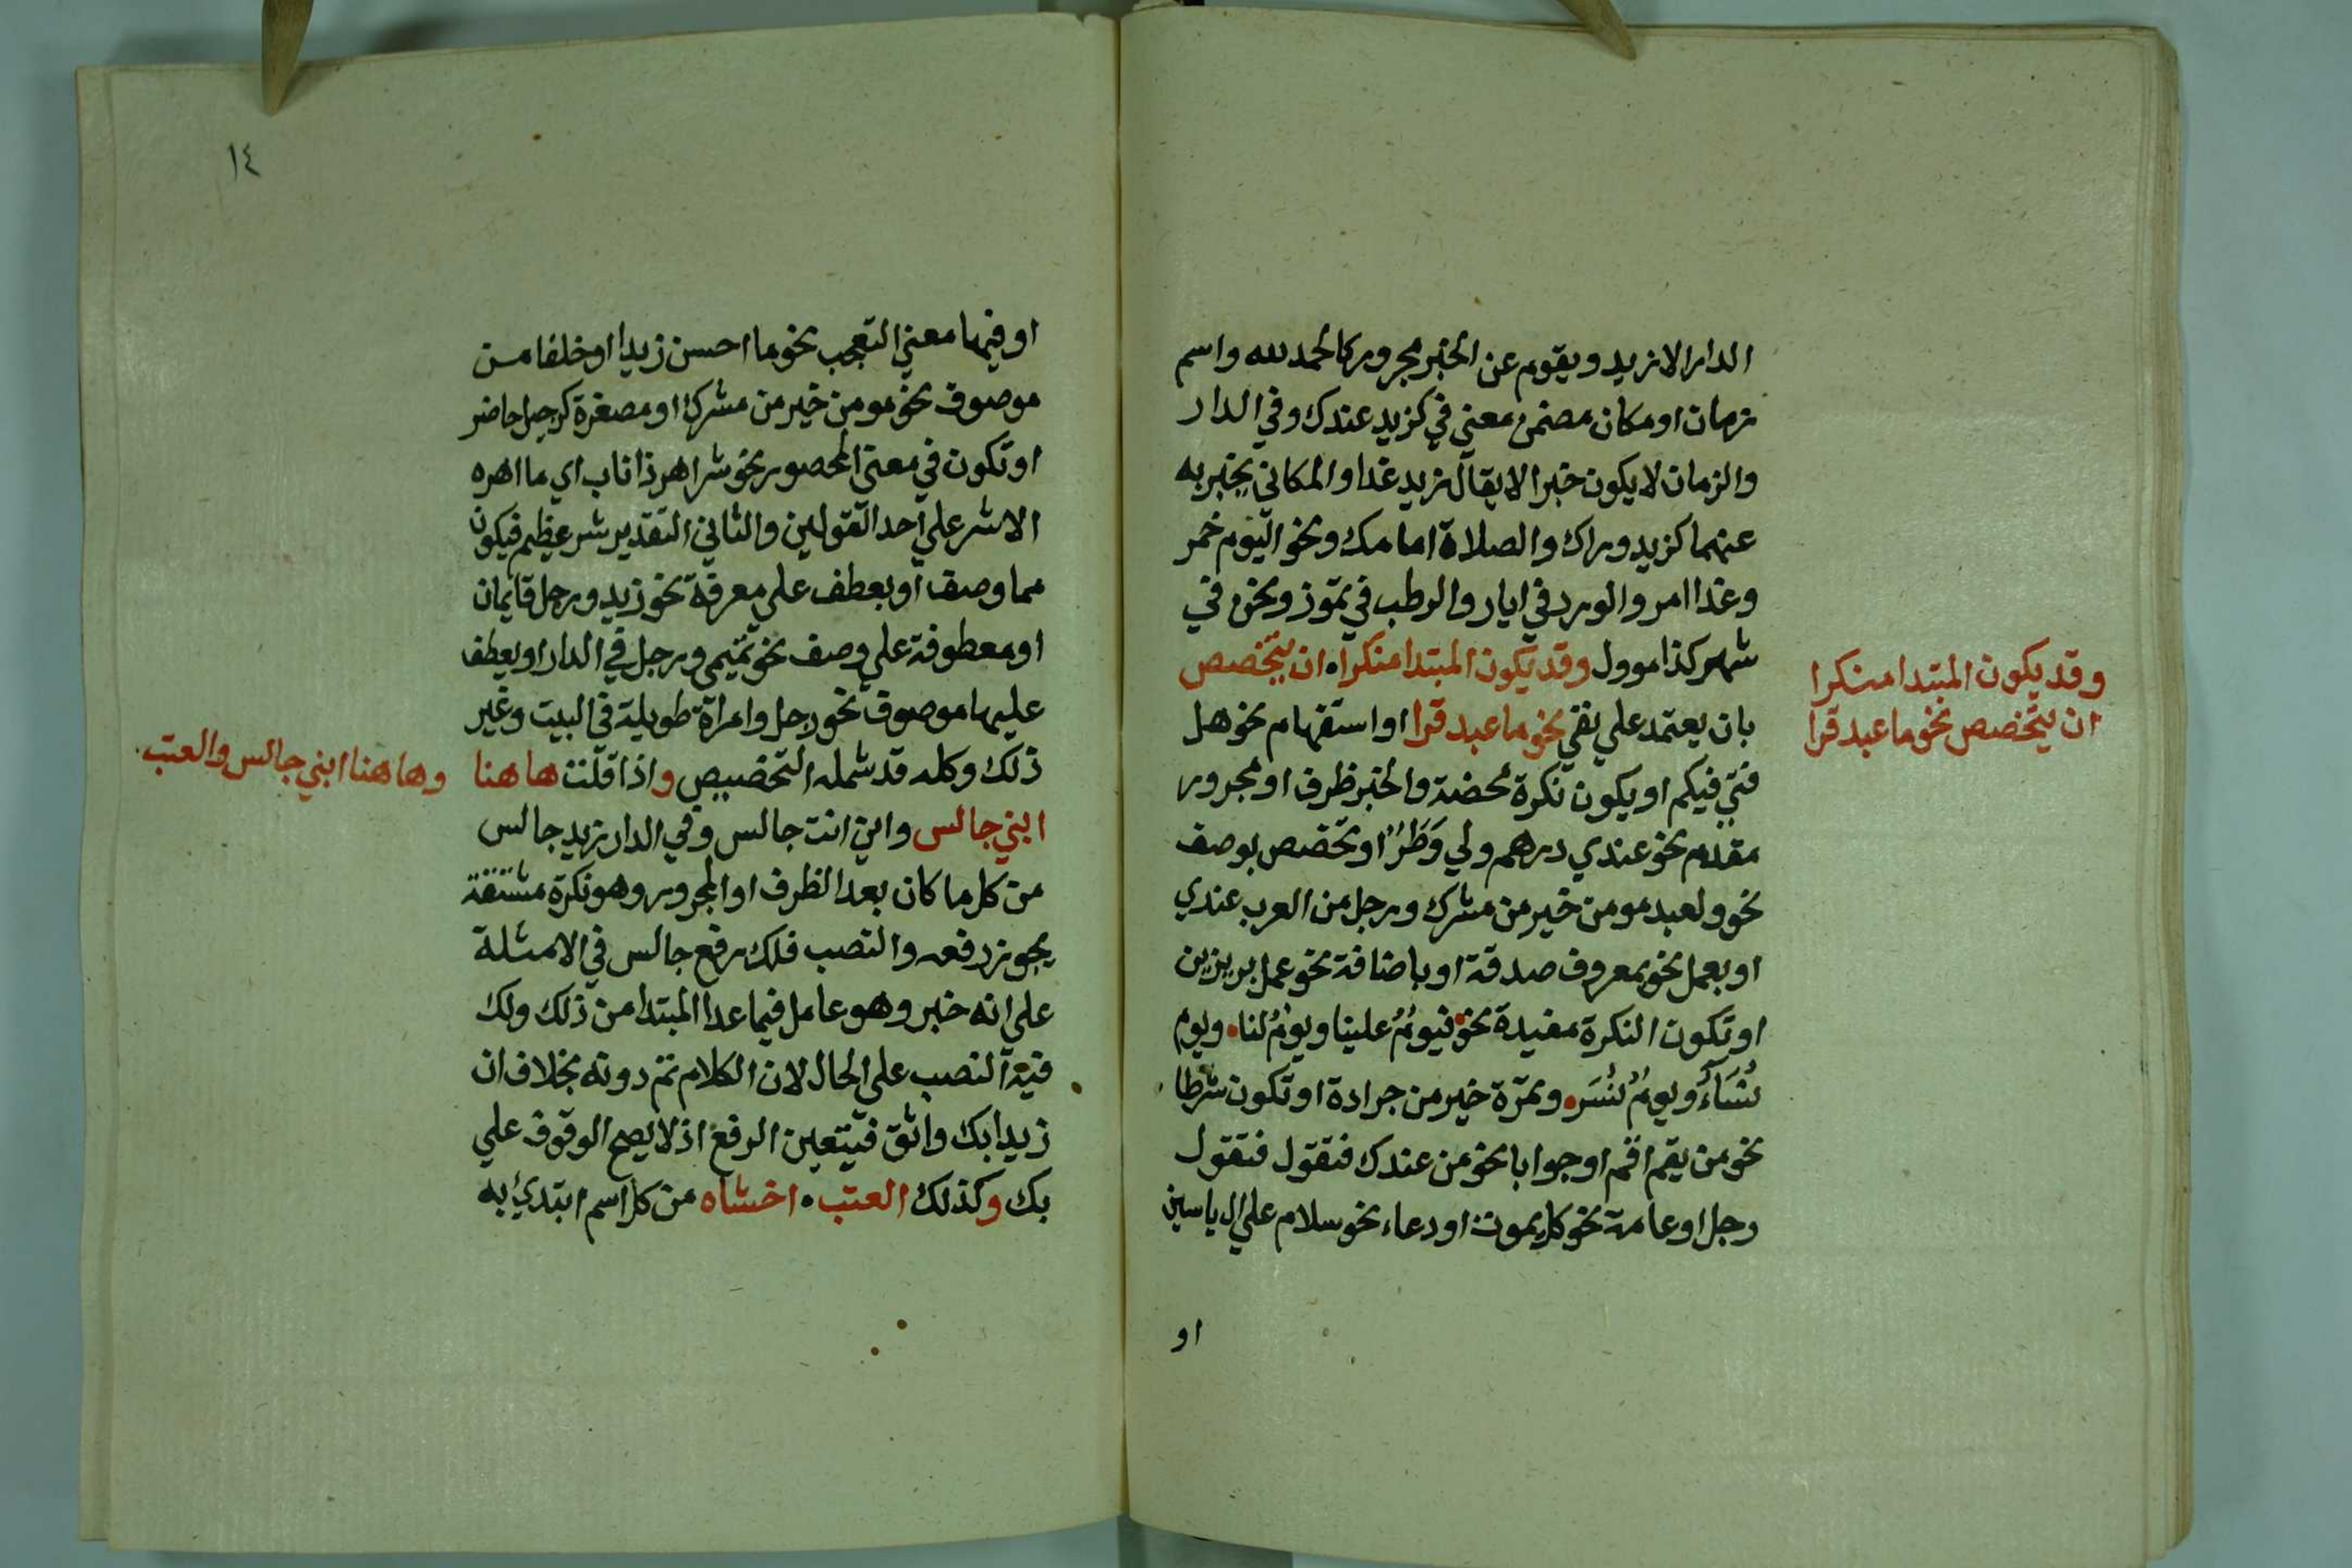 الدار الا زيد ويقوم عن الخبر مجرور كالحمد لله واسم
زمان او مكان مضمن معني في كزيد عندك وفي الدار
والزمان لا يكون خبرا لا يقال زيد غدا والمكاني يخبر به
عنهما كزيد وراك والصلاة امامك ونحو اليوم خمر
وغدا امر والورد في ايار والرطب في تموز ونحن في
شهر كذا موول وقد يكون المبتدا منكرا ان يتخصص
بان يعتمد علي نفي نحو ما عبد قرا او استفهام نحو هل
فتي فيكم او يكون نكرة محضة والخبر ظرف او مجرور
مقدم نحو عندي درهم ولي وَطَرٌ او تخصص بوصف
نحو ولعبد مومن خير من مشرك ورجل من العرب عندي
او بعمل نحو بمعروف صدقة او باضافة نحو عمل بر يزين
او تكون النكرة مفيدة نحو فيومٌ علينا ويومٌ لنا ويوم
نُسَاءُ ويومٌ نُسَر وتمرة خير من جرادة او تكون شرطا
نحو من يقم اقم او جوابا نحو من عندك فتقول فتقول
رجل او عامة نحو كل يموت او دعاء نحو سلام علي ال ياسين
او
وقد يكون المبتدا منكرا
ان يتخصص نحو ما عبد قرا
١٤
او فيها معني التعجب نحو ما احسن زيدا او خلفا من
موصوف نحو مومن خير من مشرك او مصغرة كرجيل حاضر
او تكون في معني المحصور نحو شر اهر ذا ناب اي ما اهره
الا شر علي احد القولين والثاني التقدير شر عظيم فيكون
مما وصف او بعطف علي معرفة نحو زيد ورجل قايمان
او معطوفة علي وصف نحو تميمي ورجل في الدار او يعطف
عليها موصوف نحو رجل وامراة طويلة في البيت وغير
ذلك وكله قد شمله التخصيص واذا قلت ها هنا
ابني جالس واين انت جالس وفي الدار زيد جالس
من كل ما كان بعد الظرف او المجرور وهو نكرة مشتقة
يجوز رفعه والنصب فلك رفع جالس في الامثلة
علي انه خبر وهو عامل فيما عدا المبتدا من ذلك ولك
فيه النصب علي الحال لان الكلام تم دونه بخلاف ان
زيدا بك واثق فيتعين الرفع اذ لا يصح الوقوف علي
بك وكذلك العتب اخشاه من كل اسم ابتدئ به
وها هنا ابني جالس والعتب